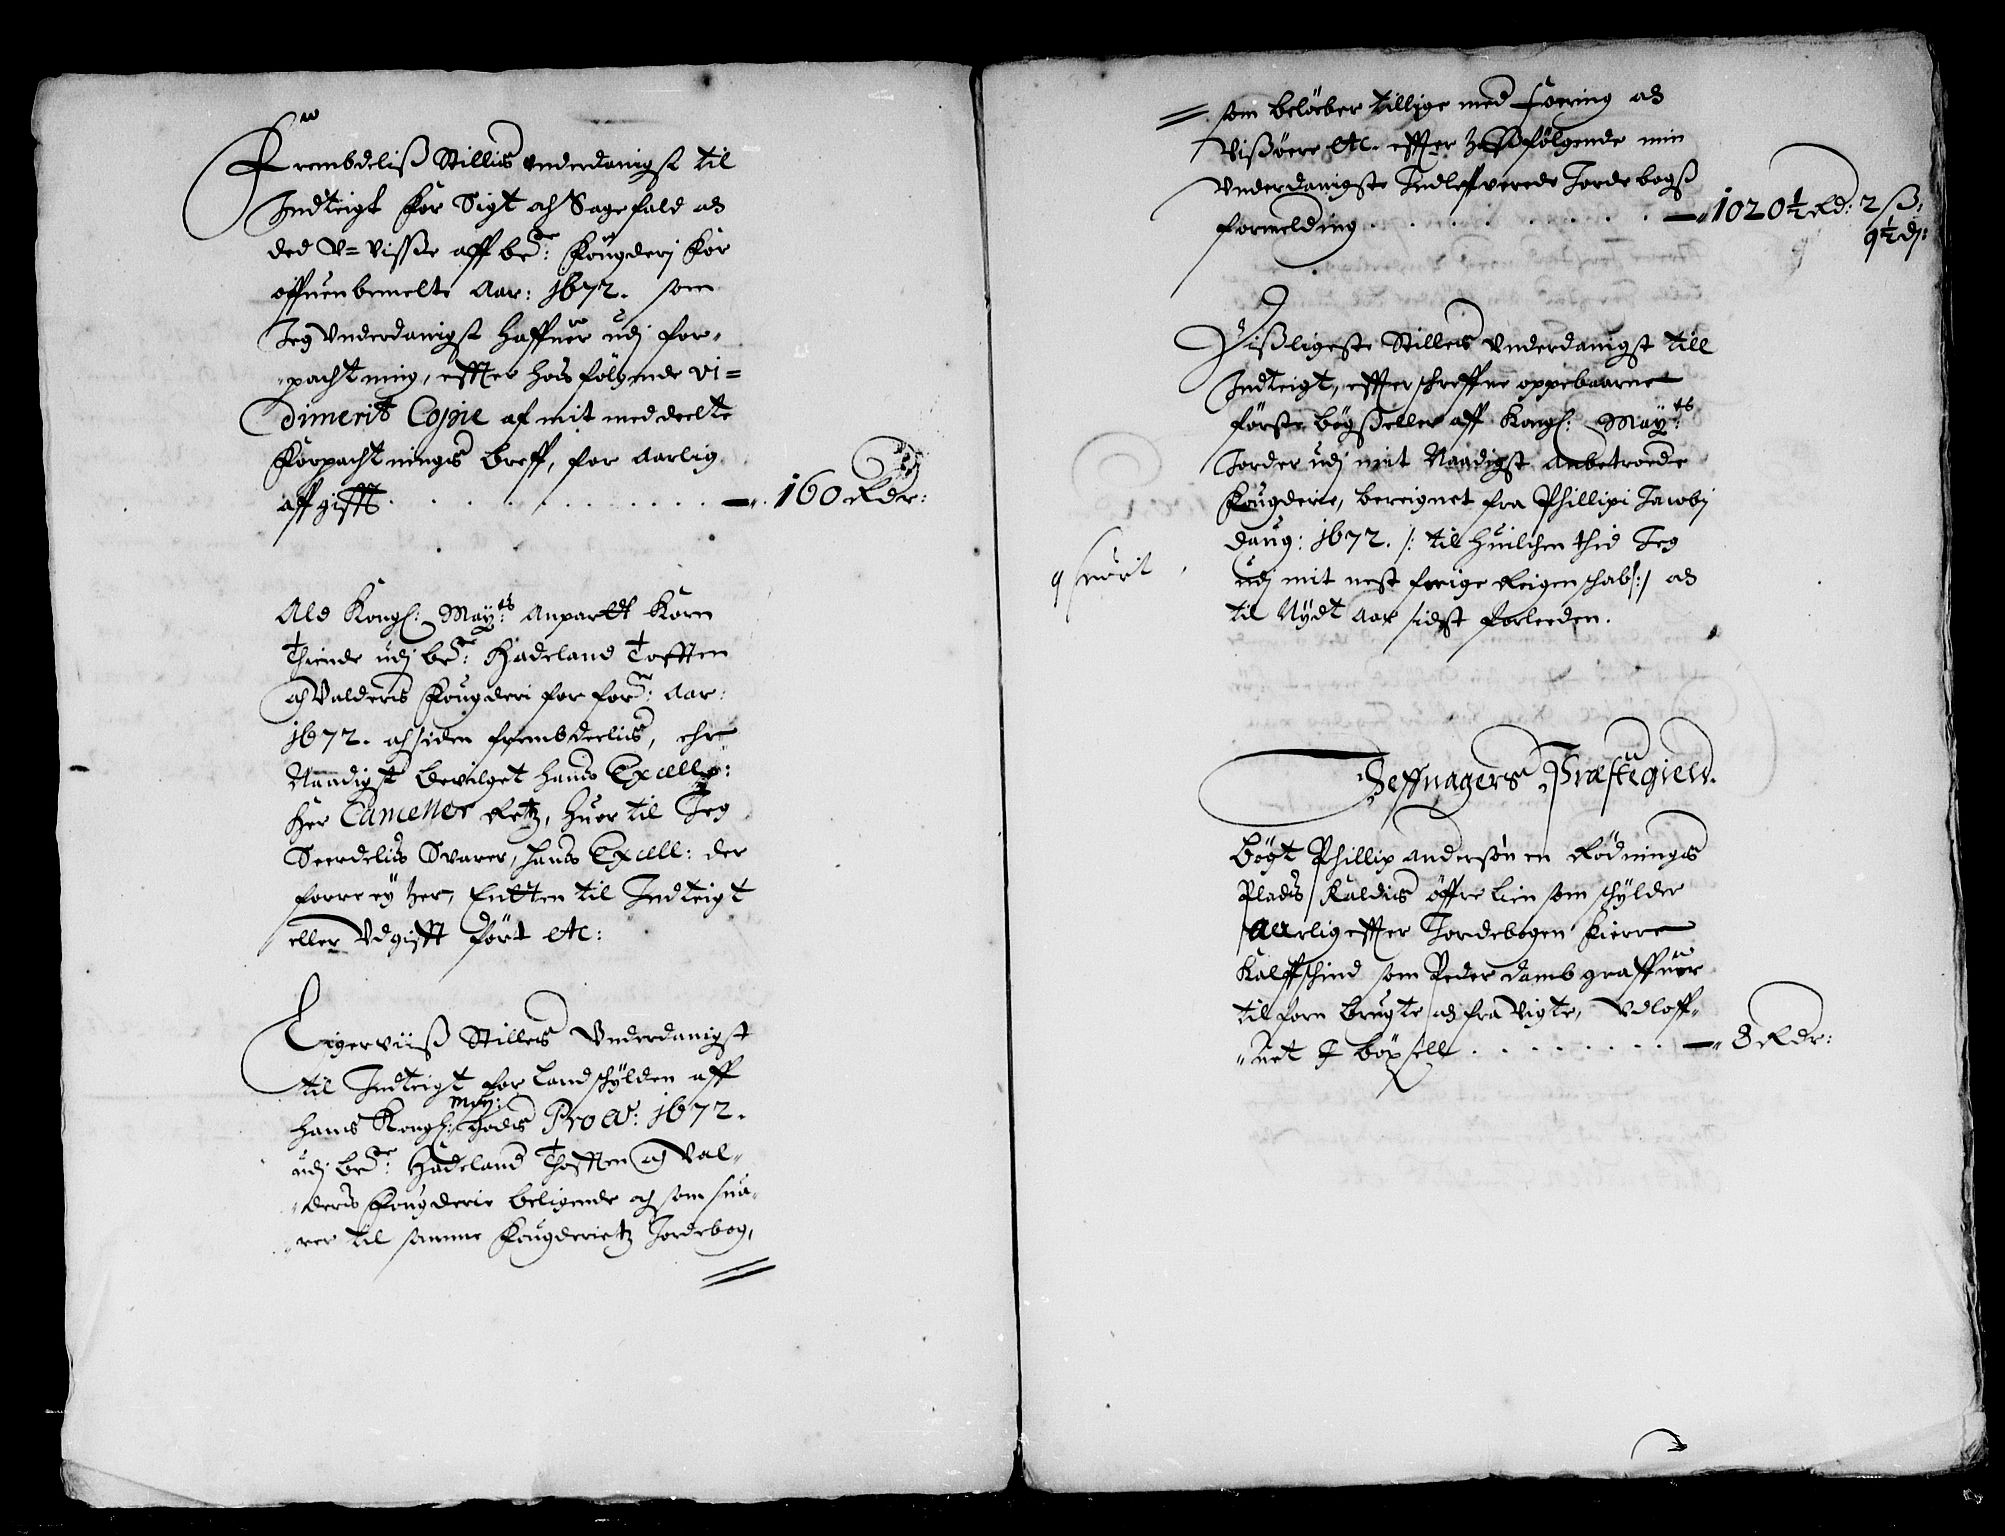 Frembdeliß Stillis vnderdanigst til
Indteigt for Sigt och Sagefald ad
ded V= visße aff be:de Fougderj for
offuenbemelte Aar: 1672. som
Jeg Vnderdanigst haffuer udj for„
„pachtning, effter hois følgende vi=
dimerit Copie af mit meddeelte
Forpachtningis breff, for aarlig
affgifft . . . . . . . . . 160 Rdr:
Ald Kongl: May:ts Anpartt Korn
Thiende udj be:de Hadeland Toftten
och Valderis Fougderi for for:ne Aar:
1672. och siden frembdeelis, ehre
Naadigst bevilget hans Excell:
Her Canceller Retz, huor til Jeg
Seerdelis Svarer, hans Excell: der
forre ey her, Entten til Indteigt
eller Vdgifft fört etc:
Ligerviiß Stilles Vnderdanigst
til Indteigt for Landschylden aff
hans Kongl: May: godis Pro Ao: 1672.
udj be:de Hadeland Thoftten og Val„
„deris Fougderie beligende och som sua„
„rer til samme Fougderietz Jordebog,
som belöeber tillige med foering ad
Visßöere etc. effter hossfölgende min
Vnderdanigste Indlefverede Jordebogß
formelding . . . . . . . 1020½ Rd: 2 ß:
9½ dj:
Dißligeste Stilles Vnderdanigst till
Indteigt, effterschreffne oppebaarne
förste bögßeller aff Kongl: May:ts
Jorder udj mit Naadigst Anbetroede
Fougderie, bereignet fra Phillipi Jacobj
daug: 1672. /: til huilchen thid Jeg
udj mit nest forrige Reigenschab :/ ad
til Nydt Aar sidst forleeden.
Jeffnagers Præstegield.
Bögt Phillip andersön en Rödnings
Pladts / Kaldis öffre Lien som schylder
Aarlig effter Jordebogen fierre
Kalffschind som Peder dambgraffuer
tilforn brugte ad fra vigte, Vdloff„
„uet J böxsell . . . . . . . 8 Rdr: